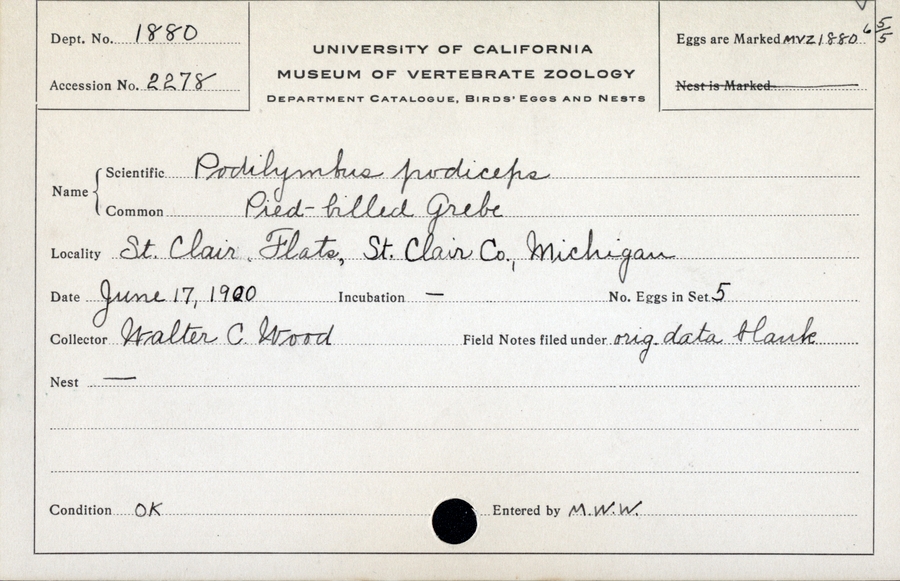 Dept. No. 1880
Accession No. 2278
UNIVERSITY OF CALIFORNIA
MUSEUM OF VERTEBRATE ZOOLOGY
DEPARTMENT CATALOGUE, BIRDS' EGGS AND NESTS
Eggs are Marked MVZ 1880 6 5/5
Nest is Marked
Name
Scientific Podilymbus podiceps
Common Pied-billed Grebe
Locality St. Clair Flats, St. Clair Co., Michigan
Date June 17, 1900 Incubation — No. Eggs in Set 5
Collector Walter C. Wood Field Notes filed under orig. data blank
Nest —
Condition OK Entered by M.W.W.